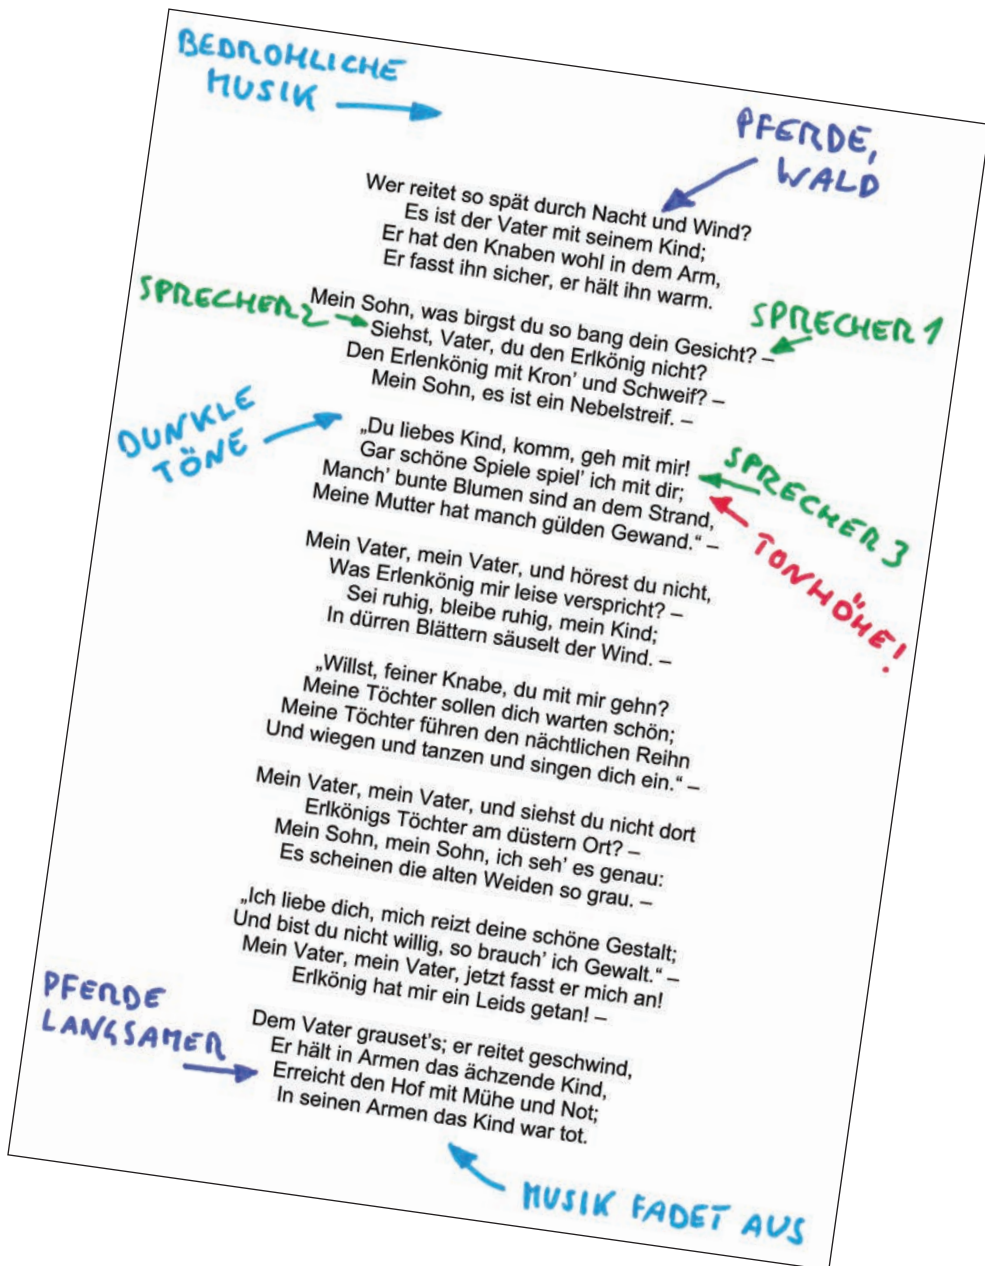 BEDROHLICHE
MUSIK
PFERDE,
WALD
Wer reitet so spät durch Nacht und Wind?
Es ist der Vater mit seinem Kind;
Er hat den Knaben wohl in dem Arm,
Er fasst ihn sicher, er hält ihn warm.
SPRECHER 2
SPRECHER 1
Mein Sohn, was birgst du so bang dein Gesicht? –
Siehst, Vater, du den Erlkönig nicht?
Den Erlenkönig mit Kron' und Schweif? –
Mein Sohn, es ist ein Nebelstreif. –
DUNKLE
TÖNE
„Du liebes Kind, komm, geh mit mir!
Gar schöne Spiele spiel' ich mit dir;
Manch' bunte Blumen sind an dem Strand,
Meine Mutter hat manch gülden Gewand." –
SPRECHER 3
TONHÖHE!
Mein Vater, mein Vater, und hörest du nicht,
Was Erlenkönig mir leise verspricht? –
Sei ruhig, bleibe ruhig, mein Kind;
In dürren Blättern säuselt der Wind. –
„Willst, feiner Knabe, du mit mir gehn?
Meine Töchter sollen dich warten schön;
Meine Töchter führen den nächtlichen Reihn
Und wiegen und tanzen und singen dich ein." –
Mein Vater, mein Vater, und siehst du nicht dort
Erlkönigs Töchter am düstern Ort? –
Mein Sohn, mein Sohn, ich seh' es genau:
Es scheinen die alten Weiden so grau. –
„Ich liebe dich, mich reizt deine schöne Gestalt;
Und bist du nicht willig, so brauch' ich Gewalt." –
Mein Vater, mein Vater, jetzt fasst er mich an!
Erlkönig hat mir ein Leids getan! –
PFERDE
LANGSAMER
Dem Vater grauset's; er reitet geschwind,
Er hält in Armen das ächzende Kind,
Erreicht den Hof mit Mühe und Not;
In seinen Armen das Kind war tot.
MUSIK FADET AUS